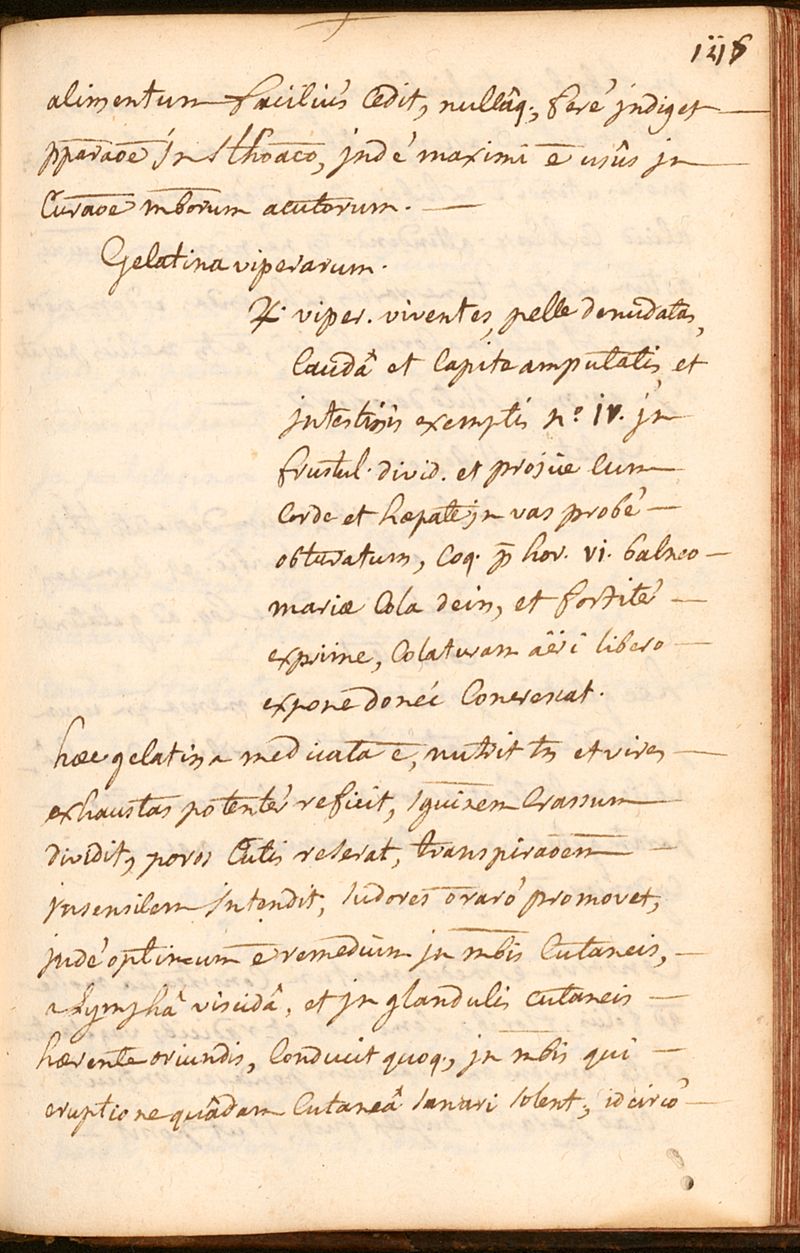 alimentum facilius cedit, nullâq; ferè jndiget
pparaōe jn sthoaco, jndè maximi ē usûs jn
Curaōe mborum acutorum.
Gelatina viperarum.
♃. viper. viventes, pelle denudatas,
Caudâ et Capite amputatis, et
jntestinis exemptis n.º iv. jn
frustul. divid. et projice Cum
Corde et hæpate jn vas probè
obturatum, Coq. p̄ hor. vi. balneo
mariæ Cola dein, et fortitèr
exprime, Colaturam aëri libero
expone donèc Concrescat.
hæc gelatina medicata ē, nutrit tn et vires
exhaustas potentèr reficit, sguinem Crassum
dividit, poros Cutis reserat, transpiraōem
jnsensilem jntendit, sudores ō rarò promovet,
jndè optimum ē remedium jn mbis Cutaneis,
a lymphâ viscidâ, et jn glandulis cutaneis
hærente oriundis, Conducit quoq; jn mbis qui
eruptione quâdam Cutaneâ sanari solent; idcircò